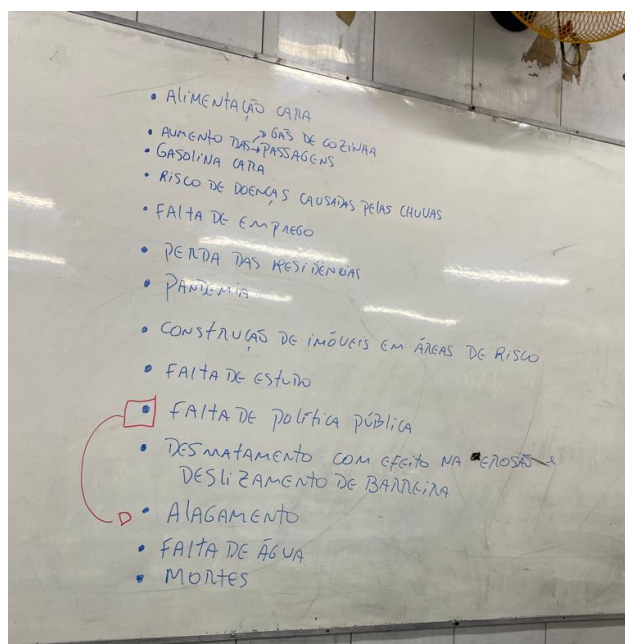 • ALIMENTAÇÃO CARA
• AUMENTO DAS → GÁS DE COZINHA
→ PASSAGENS
• GASOLINA CARA
• RISCO DE DOENÇAS CAUSADAS PELAS CHUVAS
• FALTA DE EMPREGO
• PERDA DAS RESIDÊNCIAS
• PANDEMIA
• CONSTRUÇÃO DE IMÓVEIS EM ÁREAS DE RISCO
• FALTA DE ESTUDO
• FALTA DE POLÍTICA PÚBLICA
• DESMATAMENTO COM EFEITO NA EROSÃO E
DESLIZAMENTO DE BARREIRA
• ALAGAMENTO
• FALTA DE ÁGUA
• MORTES